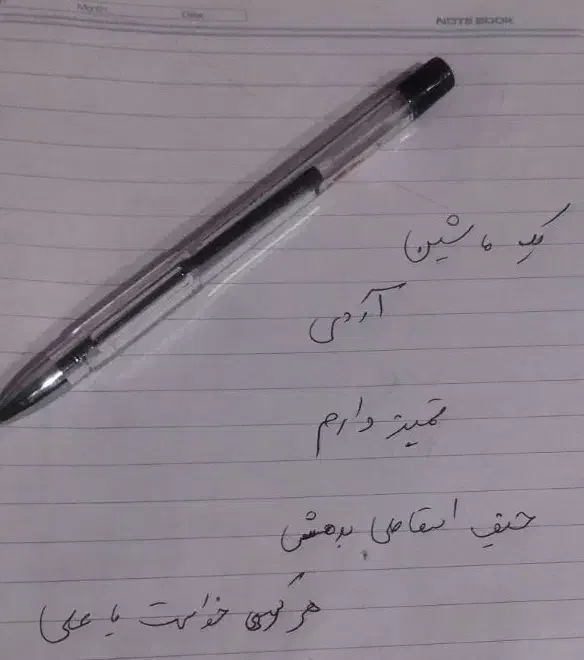 Month Date NOTE BOOK
یک ماشین
آردی
تمیز دارم
حیف اسقاطی بدهمش
هر کسی خواست یا علی